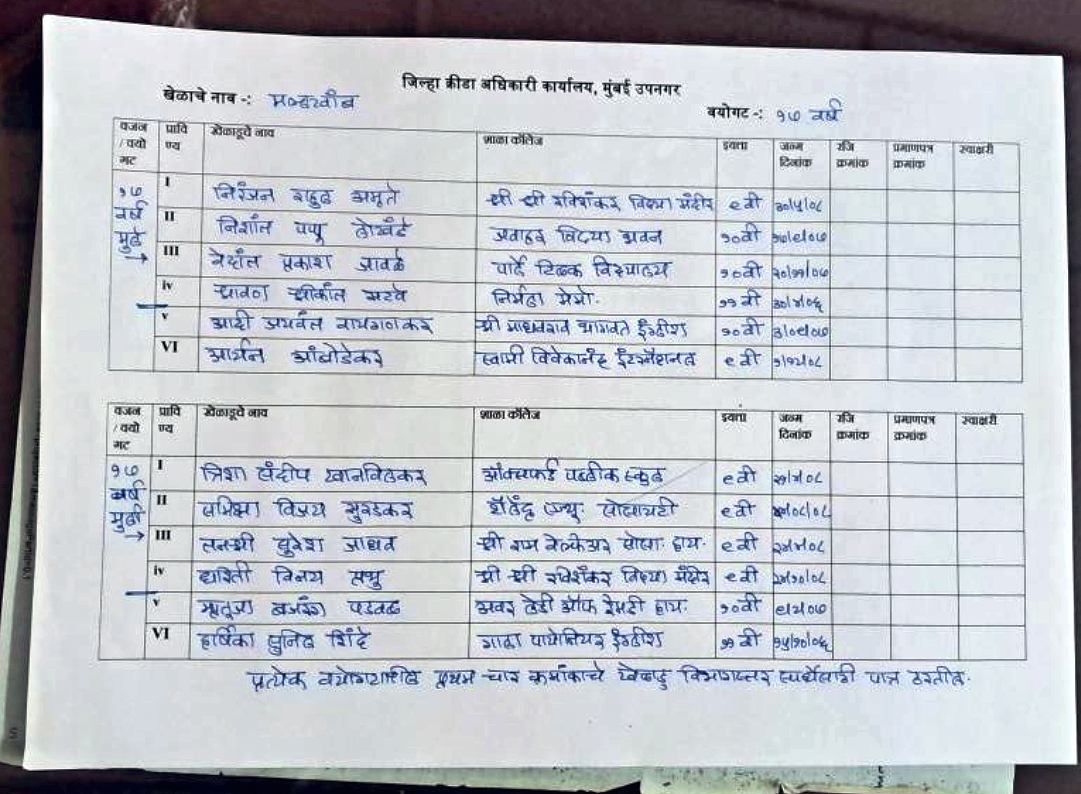 जिल्हा क्रीडा अधिकारी कार्यालय, मुंबई उपनगर
खेळाचे नाव -: मल्लखांब
वयोगट -: १७ वर्ष
वजन / वयो गट प्राविण्य खेळाडूचे नाव शाळा कॉलेज इयत्ता जन्म दिनांक रजि क्रमांक प्रमाणपत्र क्रमांक स्वाक्षरी
१७ वर्ष मुले →
I निरंजन राहुल अमृते श्री श्री रविशंकर विद्या मंदीर ९ वी ३०/५/०८
II निशांत पप्पू लोखंडे जवाहर विद्या भवन १०वी
III वेदांत प्रकाश जावळे पार्ले टिळक विद्यालय १०वी २०/११/०७
iv श्रावण श्रीकांत सर्वे निर्मला मेमो. ११ वी ३०/४/०६
v आदी जयवंत रायगणकर श्री माधवराव भागवत इंग्लीश १०वी ३/०९/०७
VI आर्यन आंबोडेकर स्वामी विवेकानंद इंटरनॅशनल ९ वी ५/१२/०८
वजन / वयो गट प्राविण्य खेळाडूचे नाव शाळा कॉलेज इयत्ता जन्म दिनांक रजि क्रमांक प्रमाणपत्र क्रमांक स्वाक्षरी
१७ वर्ष मुली →
I त्रिशा संदीप खानविलकर ऑक्सफर्ड पब्लीक स्कूल ९ वी
II समिक्षा विजय सुरडकर शैलेंद्र एज्यु. सोसायटी ९ वी
III तनश्री सुरेश जाधव श्री राम वेल्फेअर सोसा. हाय. ९ वी २४/४/०८
iv धरिती विनय प्रभु श्री श्री रविशंकर विद्या मंदीर ९ वी २०/१०/०८
v ऋतूजा बजरंग पडवळ अवर लेडी ऑफ रेमेडी हाय. १०वी ९/४/०७
VI हार्षिका सुनिल शिंदे गाला पायोनियर इंग्लीश ११ वी १५/१०/०६
प्रत्येक वयोगटातील प्रथम चार क्रमांकाचे खेळाडू विभागस्तर स्पर्धेसाठी पात्र ठरतील.